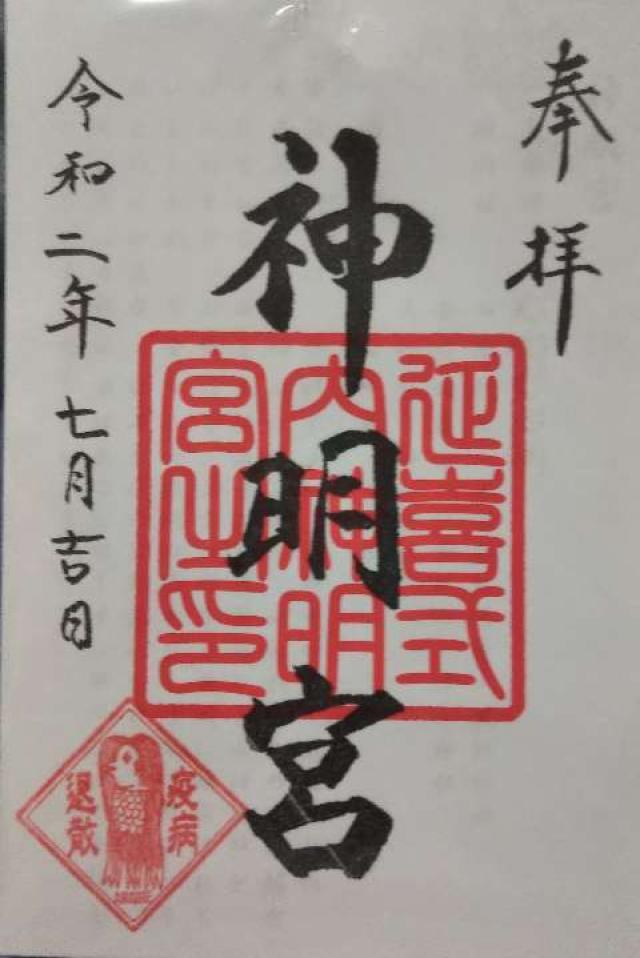 奉拝
延喜式
内神明
宮之印
神明宮
令和二年七月吉日
疫病
退散